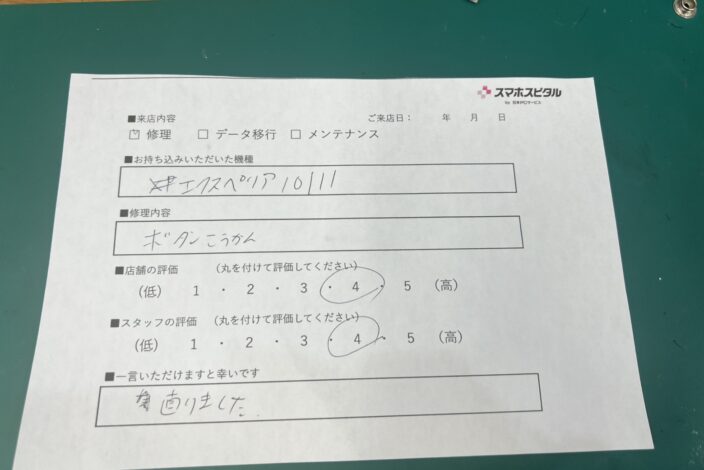 スマホスピタル
by 日本PCサービス
■来店内容
ご来店日： 年 月 日
□ 修理 □ データ移行 □ メンテナンス
■お持ち込みいただいた機種
エクスペリア10111
■修理内容
ボタンこうかん
■店舗の評価 （丸を付けて評価してください）
（低） 1 ・ 2 ・ 3 ・ 4 ・ 5 （高）
■スタッフの評価 （丸を付けて評価してください）
（低） 1 ・ 2 ・ 3 ・ 4 ・ 5 （高）
■一言いただけますと幸いです
直りました。